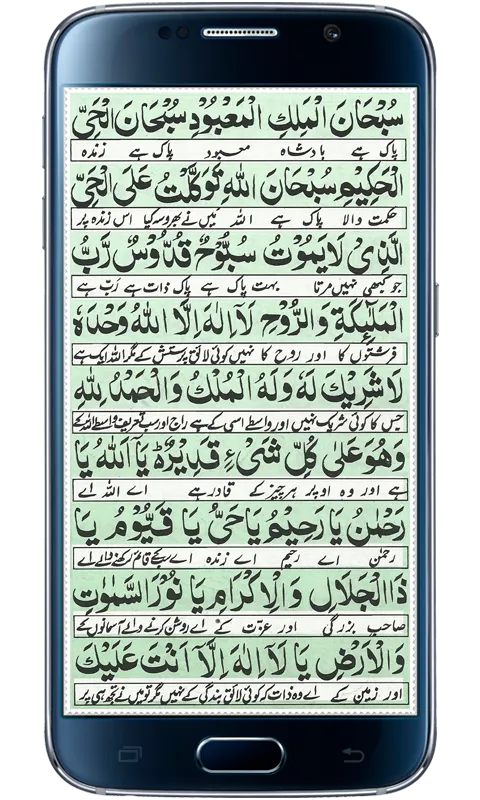 سُبْحَانَ الْمَلِكِ الْمَعْبُوْدِ سُبْحَانَ الْحَيِّ
پاک ہے بادشاہ معبود پاک ہے زندہ
الْحَكِيْمِ سُبْحَانَ اللهِ تَوَكَّلْتُ عَلَى الْحَيِّ
حکمت والا پاک ہے اللہ میں نے بھروسہ کیا اس زندہ پر
الَّذِىْ لَا يَمُوْتُ سُبُّوْحٌ قُدُّوْسٌ رَبُّ
جو کبھی نہیں مرتا بہت پاک ہے پاک ذات ہے رَبّ ہے
الْمَلٰٓئِكَةِ وَالرُّوْحِ لَآ اِلٰهَ اِلَّا اللهُ وَحْدَهٗ
فرشتوں کا اور روح کا نہیں کوئی لائق پرستش کے مگر اللہ ایک ہے
لَا شَرِيْكَ لَهٗ وَلَهُ الْمُلْكُ وَالْحَمْدُ لِلّٰهِ
جس کا کوئی شریک نہیں اور واسطے اسی کے ہے راج اور سب تعریف واسطے اللہ کے
وَهُوَ عَلٰى كُلِّ شَىْءٍ قَدِيْرٌ يَآ اَللهُ يَا
ہے اور وہ اوپر ہر چیز کے قادر ہے اے اللہ اے
رَحْمٰنُ يَا رَحِيْمُ يَا حَيُّ يَا قَيُّوْمُ يَا
رحمٰن اے رحیم اے زندہ اے سب کے قائم رکھنے والے اے
ذَا الْجَلَالِ وَالْاِكْرَامِ يَا نُوْرَ السَّمٰوٰتِ
صاحب بزرگی اور عزّت کے اے روشن کرنے والے آسمانوں کے
وَالْاَرْضِ يَا لَآ اِلٰهَ اِلَّآ اَنْتَ عَلَيْكَ
اور زمین کے اے وہ ذات کہ کوئی لائق بندگی کے نہیں مگر تو میں نے تجھ ہی پر